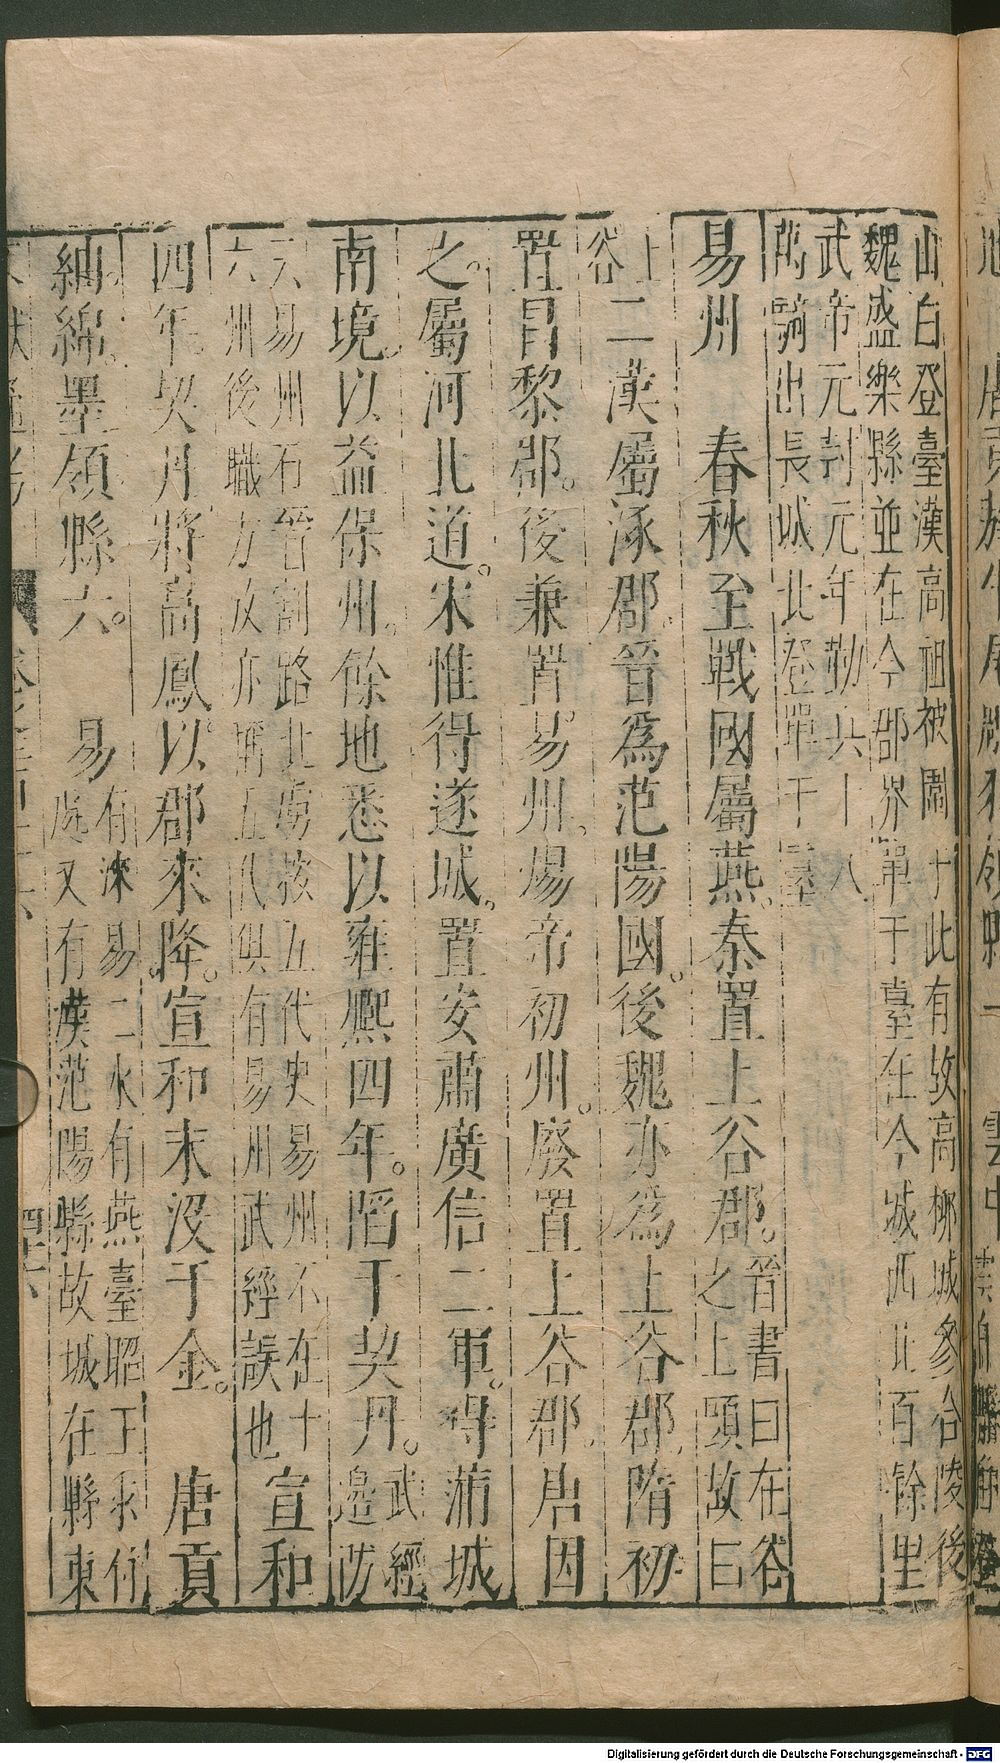 山白登臺漢高祖被圍于此有故高柳城參合陵後
魏盛樂縣並在今郡界單于臺在今城西北百餘里
武帝元封元年勒兵十八
萬騎出長城北登單于臺
易州　春秋至戰國屬燕秦置上谷郡。晉書曰在谷
之上頭故曰
上
谷二漢屬涿郡。晉為范陽國。後魏亦為上谷郡。隋初
置昌黎郡。後兼置易州。煬帝初州。廢置上谷郡。唐因
之。屬河北道。宋惟得遂城。置安肅廣信二軍。得蒲城
南境。以益保州。餘地悉以雍熙四年。陷于契丹。武經
邊防
云易州石晉割路北虜按五代史易州不在十
六州後職方攷亦稱五代俱有易州武經誤也宣和
四年契丹將高鳳。以郡來降。宣和末沒于金。　唐貢
紬綿墨領縣六。　易有淶易二水有燕臺昭王求
處又有漢范陽縣故城在縣東
四十六
Digitalisierung gefördert durch die Deutsche Forschungsgemeinschaft - DFG